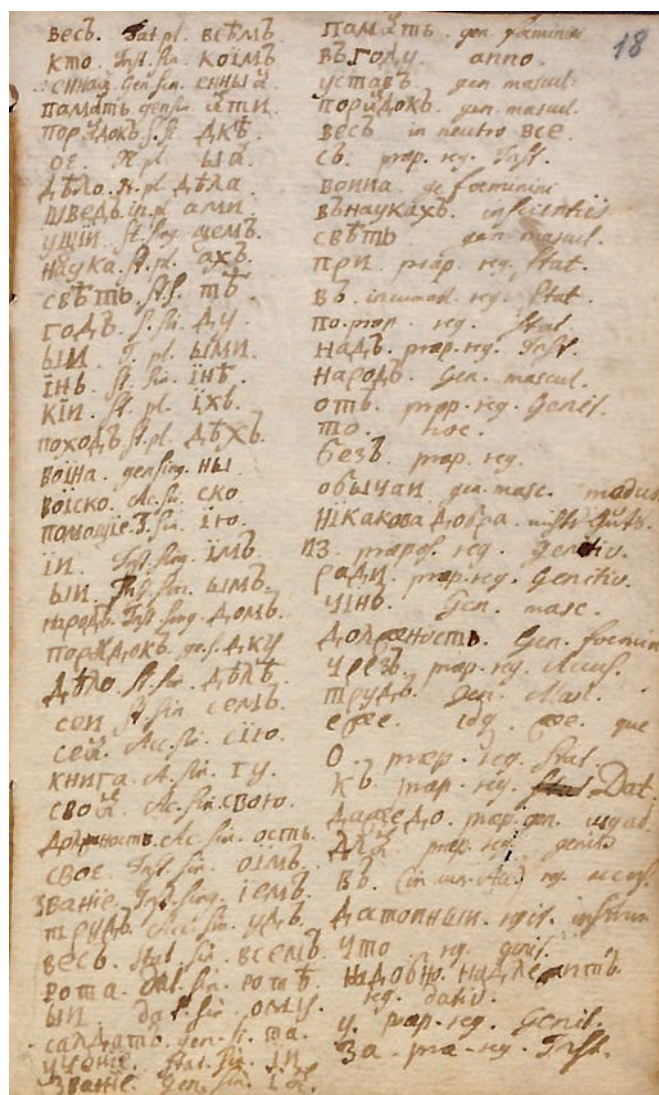 18
весь. Dat.pl. всѣмъ.
кто. Inst. Sin. коїмъ
енная Gen. sin. енныя.
память gen sin яти.
порядокъ. S. Si. дкѣ.
ое. N. pl. ыя.
дѣло. N. pl. дѣла
шведъ. in. pl. ами.
ущїи. St. Sing. щемъ.
наука. St. pl. ахъ.
свѣтъ. St. S. тѣ
годъ. S. Si. ду
ыи. I. pl. ыми.
їнъ. St. Sin. їнѣ.
кїи. St. pl. їхъ.
походъ. St. pl. дѣхъ.
воїна. gen sing. ны
воїско. Ac. Si. ско
помощїе. I. Sin. їю.
їи. Inst. Sing. їмъ.
ыи. Inst. Sin. ымъ.
народъ. Inst. Sing. домъ.
порядокъ. ge. S. дку
дѣло. St. Sin. дѣлѣ
сеи St. Sin семъ.
сея. Acc. Sin. сїю.
книга. A. Sin. гу.
своя. Ac. Sin. свою.
должность. Ac. Sin. ость.
свое. Inst. Sin. оїмъ.
званїе. Inst. Sing. їемъ.
трудъ. Acc. Sin. удъ.
весь. Stat. Sin. всемъ
рота. Dat. Sin. ротѣ
ыи. dat. Sin. ому.
салдатъ. gen. Si. та.
ученїе. Stat. Sin. їи.
званїе. Gen. Sin. їя.
память. gen. foeminini
въ году. anno.
уставъ gen mascul.
порядокъ. gen. mascul.
весь in neutro все.
съ. præp. reg. Inst.
воина. ge foeminini
въ наукахъ. in scientiis
свѣтъ gen. mascul.
при. præp. reg. Stat.
въ. reg. Stat.
по. præp. reg. Stat.
надъ. præp. reg. Inst.
народъ. Gen. mascul.
отъ. præp. reg. Genit.
то. hoc.
безъ. præp. reg.
обычаи gen. masc. modus
нїкакова добра.
из. præpos. reg. Genitiv.
ради. præp. reg. Genitiv.
чїнъ. Gen. masc.
должность. Gen. foemin
чрезъ. præp. reg. Accus.
трудъ. Gen. Masc.
еже. idq. же. que
о. præp. reg. Stat.
къ præp. reg. Dat.
даже до. præp. gen. usq ad.
для præp. reg. genit.
въ. reg. accus.
достоиныи.
что reg. genit.
надобно. надлежитъ.
reg. dativ.
у. præp. reg. Genit.
за. præ. reg. Inst.